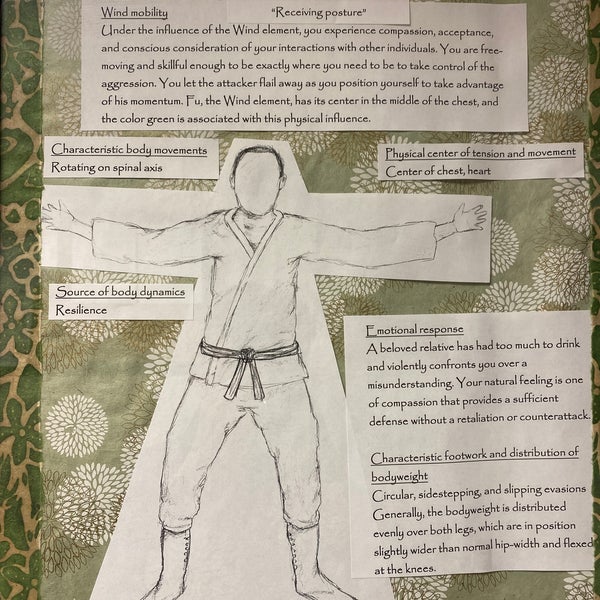 Wind mobility
"Receiving posture"
Under the influence of the Wind element, you experience compassion, acceptance,
and conscious consideration of your interactions with other individuals. You are free-
moving and skillful enough to be exactly where you need to be to take control of the
aggression. You let the attacker flail away as you position yourself to take advantage
of his momentum. Fu, the Wind element, has its center in the middle of the chest, and
the color green is associated with this physical influence.
Characteristic body movements
Rotating on spinal axis
Physical center of tension and movement
Center of chest, heart
Source of body dynamics
Resilience
Emotional response
A beloved relative has had too much to drink
and violently confronts you over a
misunderstanding. Your natural feeling is one
of compassion that provides a sufficient
defense without a retaliation or counterattack.
Characteristic footwork and distribution of
bodyweight
Circular, sidestepping, and slipping evasions
Generally, the bodyweight is distributed
evenly over both legs, which are in position
slightly wider than normal hip-width and flexed
at the knees.